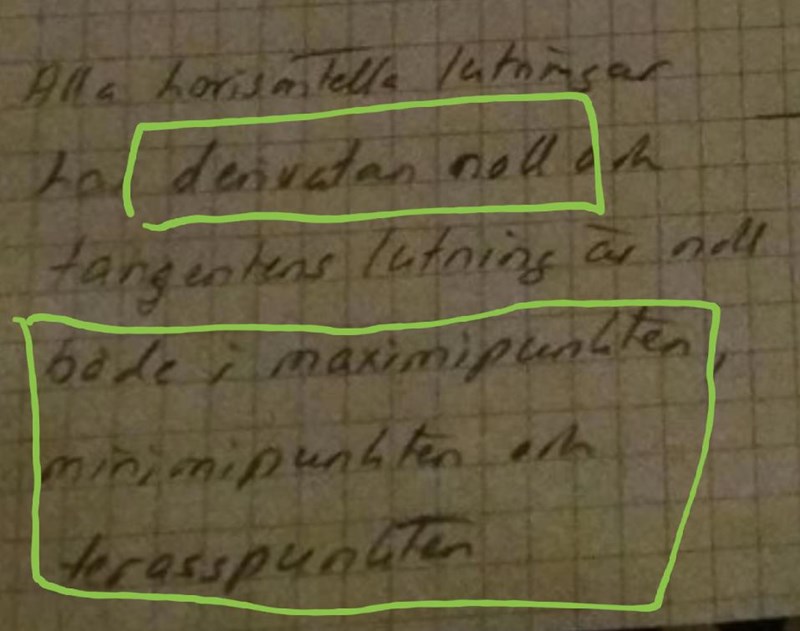 Alla horisontella lutningar
har derivatan noll och
tangentens lutning är noll
både i maximipunkten,
minimipunkten och
terasspunkten